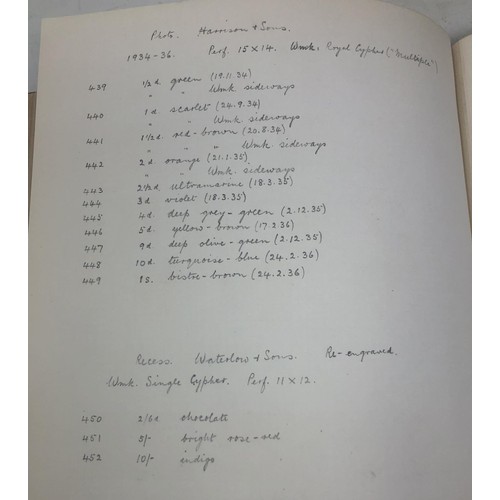 Photo. Harrison & Sons.
1934-36. Perf. 15 x 14. Wmk. Royal Cypher ("Multiple")
439 1/2d green (19.11.34)
" " Wmk sideways
440 1d scarlet (24.9.34)
" " Wmk. sideways
441 1 1/2d red-brown (20.8.34)
" " " Wmk sideways
442 2d orange (21.1.35)
" " Wmk. sideways
443 2 1/2d ultramarine (18.3.35)
444 3d violet (18.3.35)
445 4d deep grey-green (2.12.35)
446 5d yellow-brown (17.2.36)
447 9d deep olive-green (2.12.35)
448 10d turquoise-blue (24.2.36)
449 1s. bistre-brown (24.2.36)
Recess. Waterlow & Sons. Re-engraved.
Wmk. Single Cypher. Perf. 11 x 12.
450 2/6d chocolate
451 5/- bright rose-red
452 10/- indigo